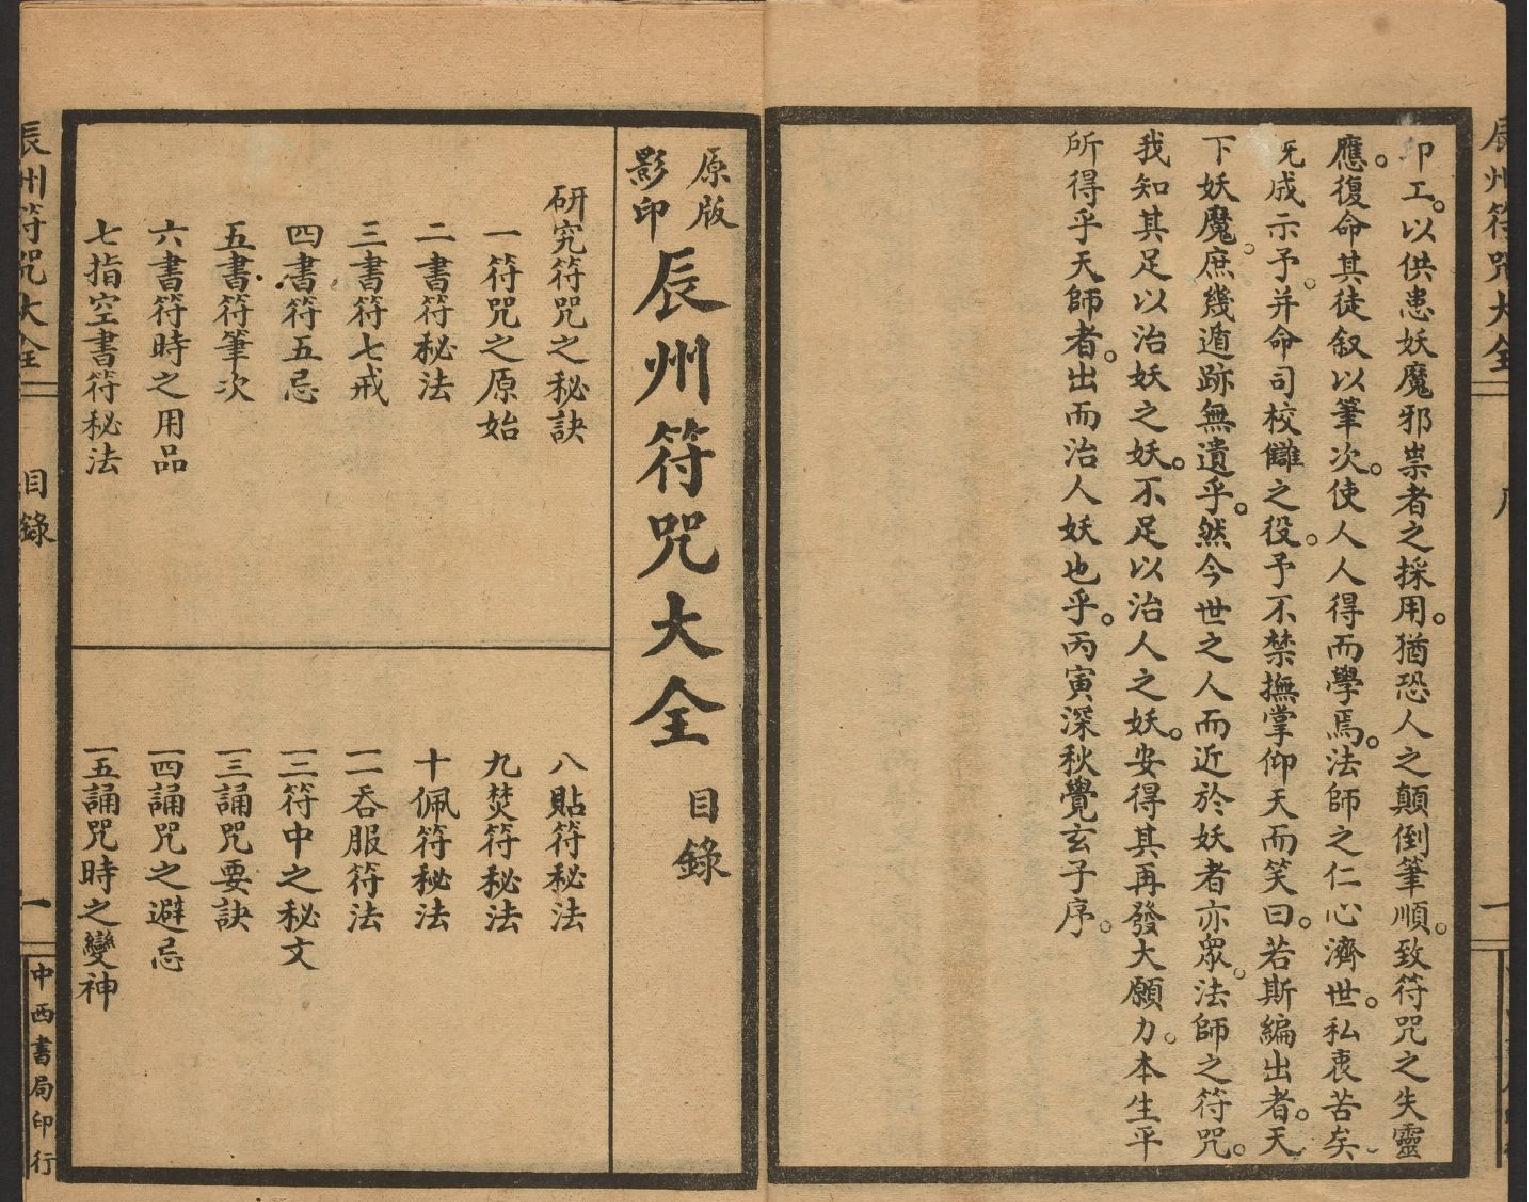 辰州符咒大全
印工。以供患妖魔邪祟者之採用。猶恐人之顛倒筆順。致符咒之失靈
應。復命其徒叙以筆次。使人人得而學焉。法師之仁心濟世。私衷苦矣、
既成示予。并命司校讎之役。予不禁撫掌仰天而笑曰。若斯編出者。天
下妖魔。庶幾遁跡無遺乎。然今世之人而近於妖者亦衆。法師之符咒。
我知其足以治妖之妖。不足以治人之妖。安得其再發大願力。本生平
所得乎天師者。出而治人妖也乎。丙寅深秋覺玄子序。
原版影印 辰州符咒大全 目錄
研究符咒之秘訣
一符咒之原始
二書符秘法
三書符七戒
四書符五忌
五書符筆次
六書符時之用品
七指空書符秘法
八貼符秘法
九焚符秘法
十佩符秘法
一一吞服符法
一二符中之秘文
一三誦咒要訣
一四誦咒之避忌
一五誦咒時之變神
辰州符咒大全 目錄 一 中西書局印行